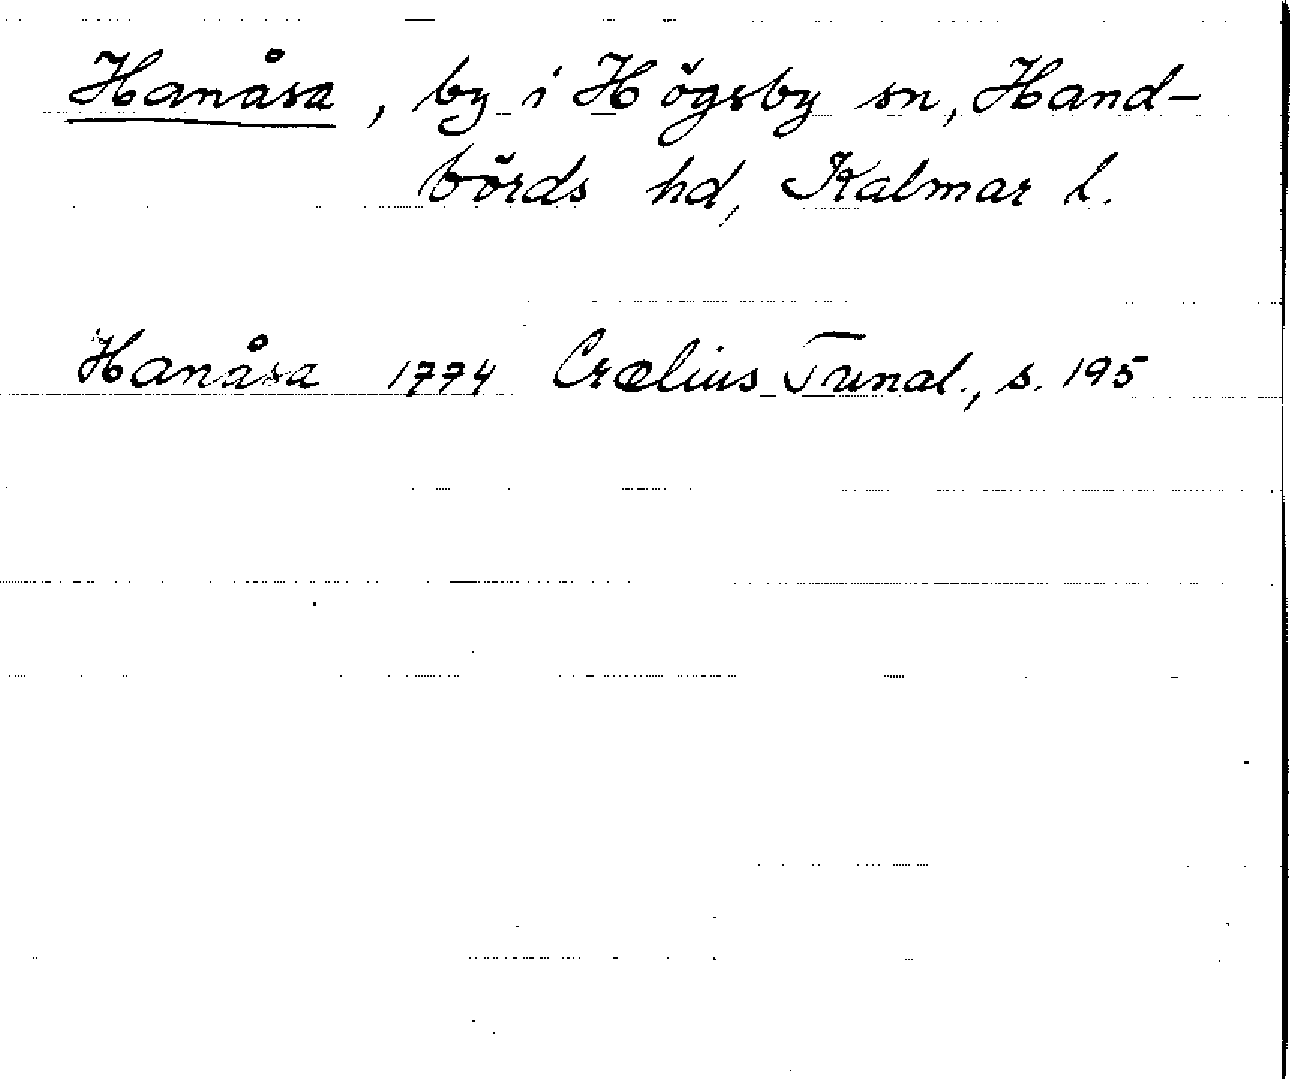 Hanåsa, by i Högsby sn, Hand-
börds hd, Kalmar l.
Hanåsa 1774 Crælius Tunal., s. 195